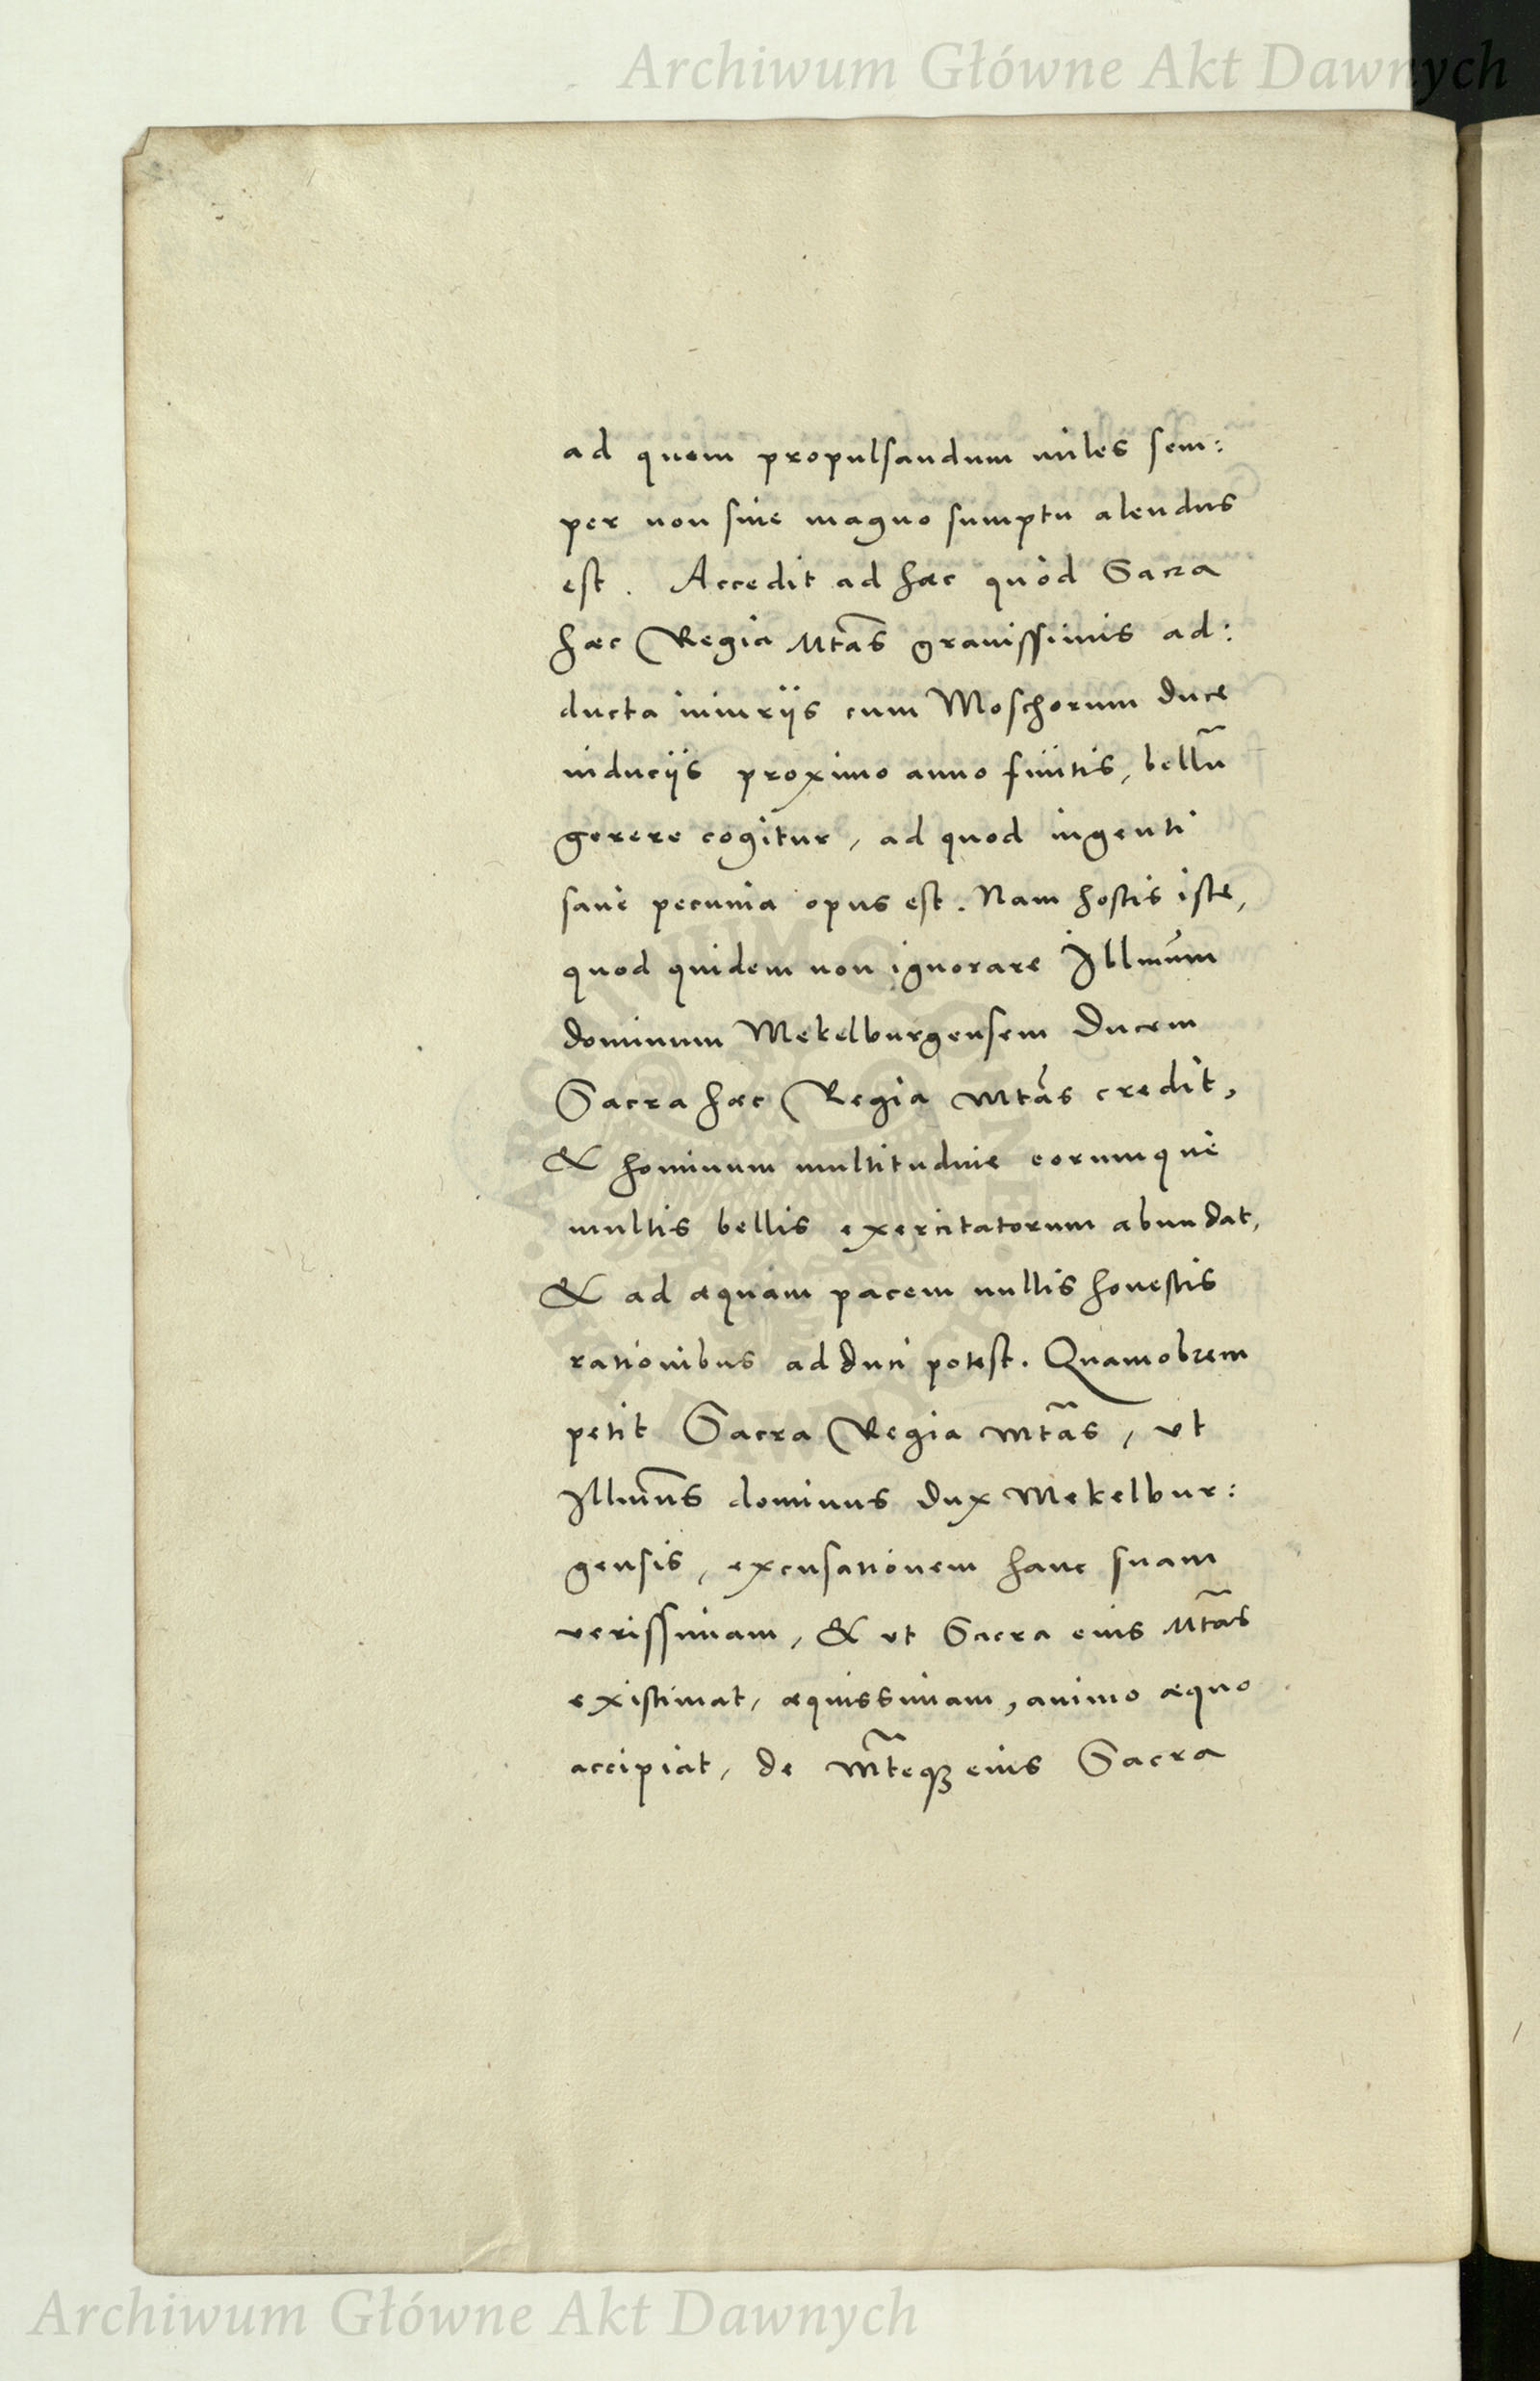 Archiwum Główne Akt Dawnych
ad quem propulsandum miles sem:
per non sine magno sumptu alendus
est. Accedit ad hæc quòd Sacra
hæc Regia Mtãs grauissimis ad:
ducta iniurijs cum Moschorum duce
inducijs proximo anno finitis, bellũ
gerere cogitur, ad quod ingenti
sanè pecunia opus est. Nam hostis iste,
quod quidem non ignorare Illmum
dominum Mekelburgensem Ducem
Sacra hæc Regia Mtãs credit,
& hominum multitudine eorumquè
multis bellis exercitatorum abundat,
& ad æquam pacem nullis honestis
rationibus adduci potest. Quamobrem
petit Sacra Regia Mtãs, vt
Illmus dominus Dux Mekelbur:
gensis, excusationem hanc suam
verissimam, & vt Sacra eius Mtãs
existimat, æquissimam, animo æquo
accipiat, de Mteq; eius Sacra
Archiwum Główne Akt Dawnych